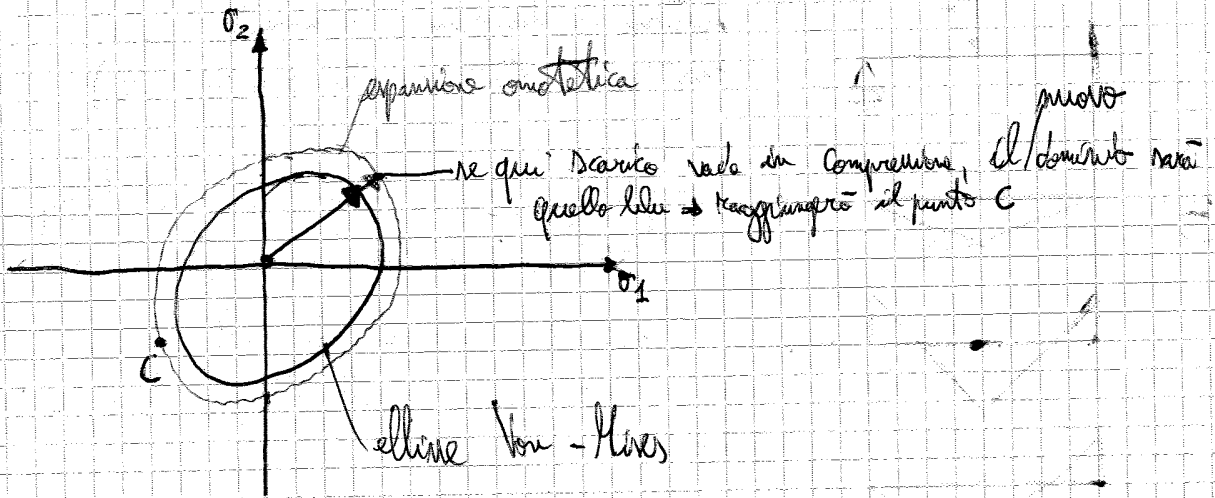 σ2
espansione omotetica
nuovo
se qui scarico vado in compressione, il dominio sarà
quello blu → raggiungerò il punto C
σ1
C
ellisse Von-Mises